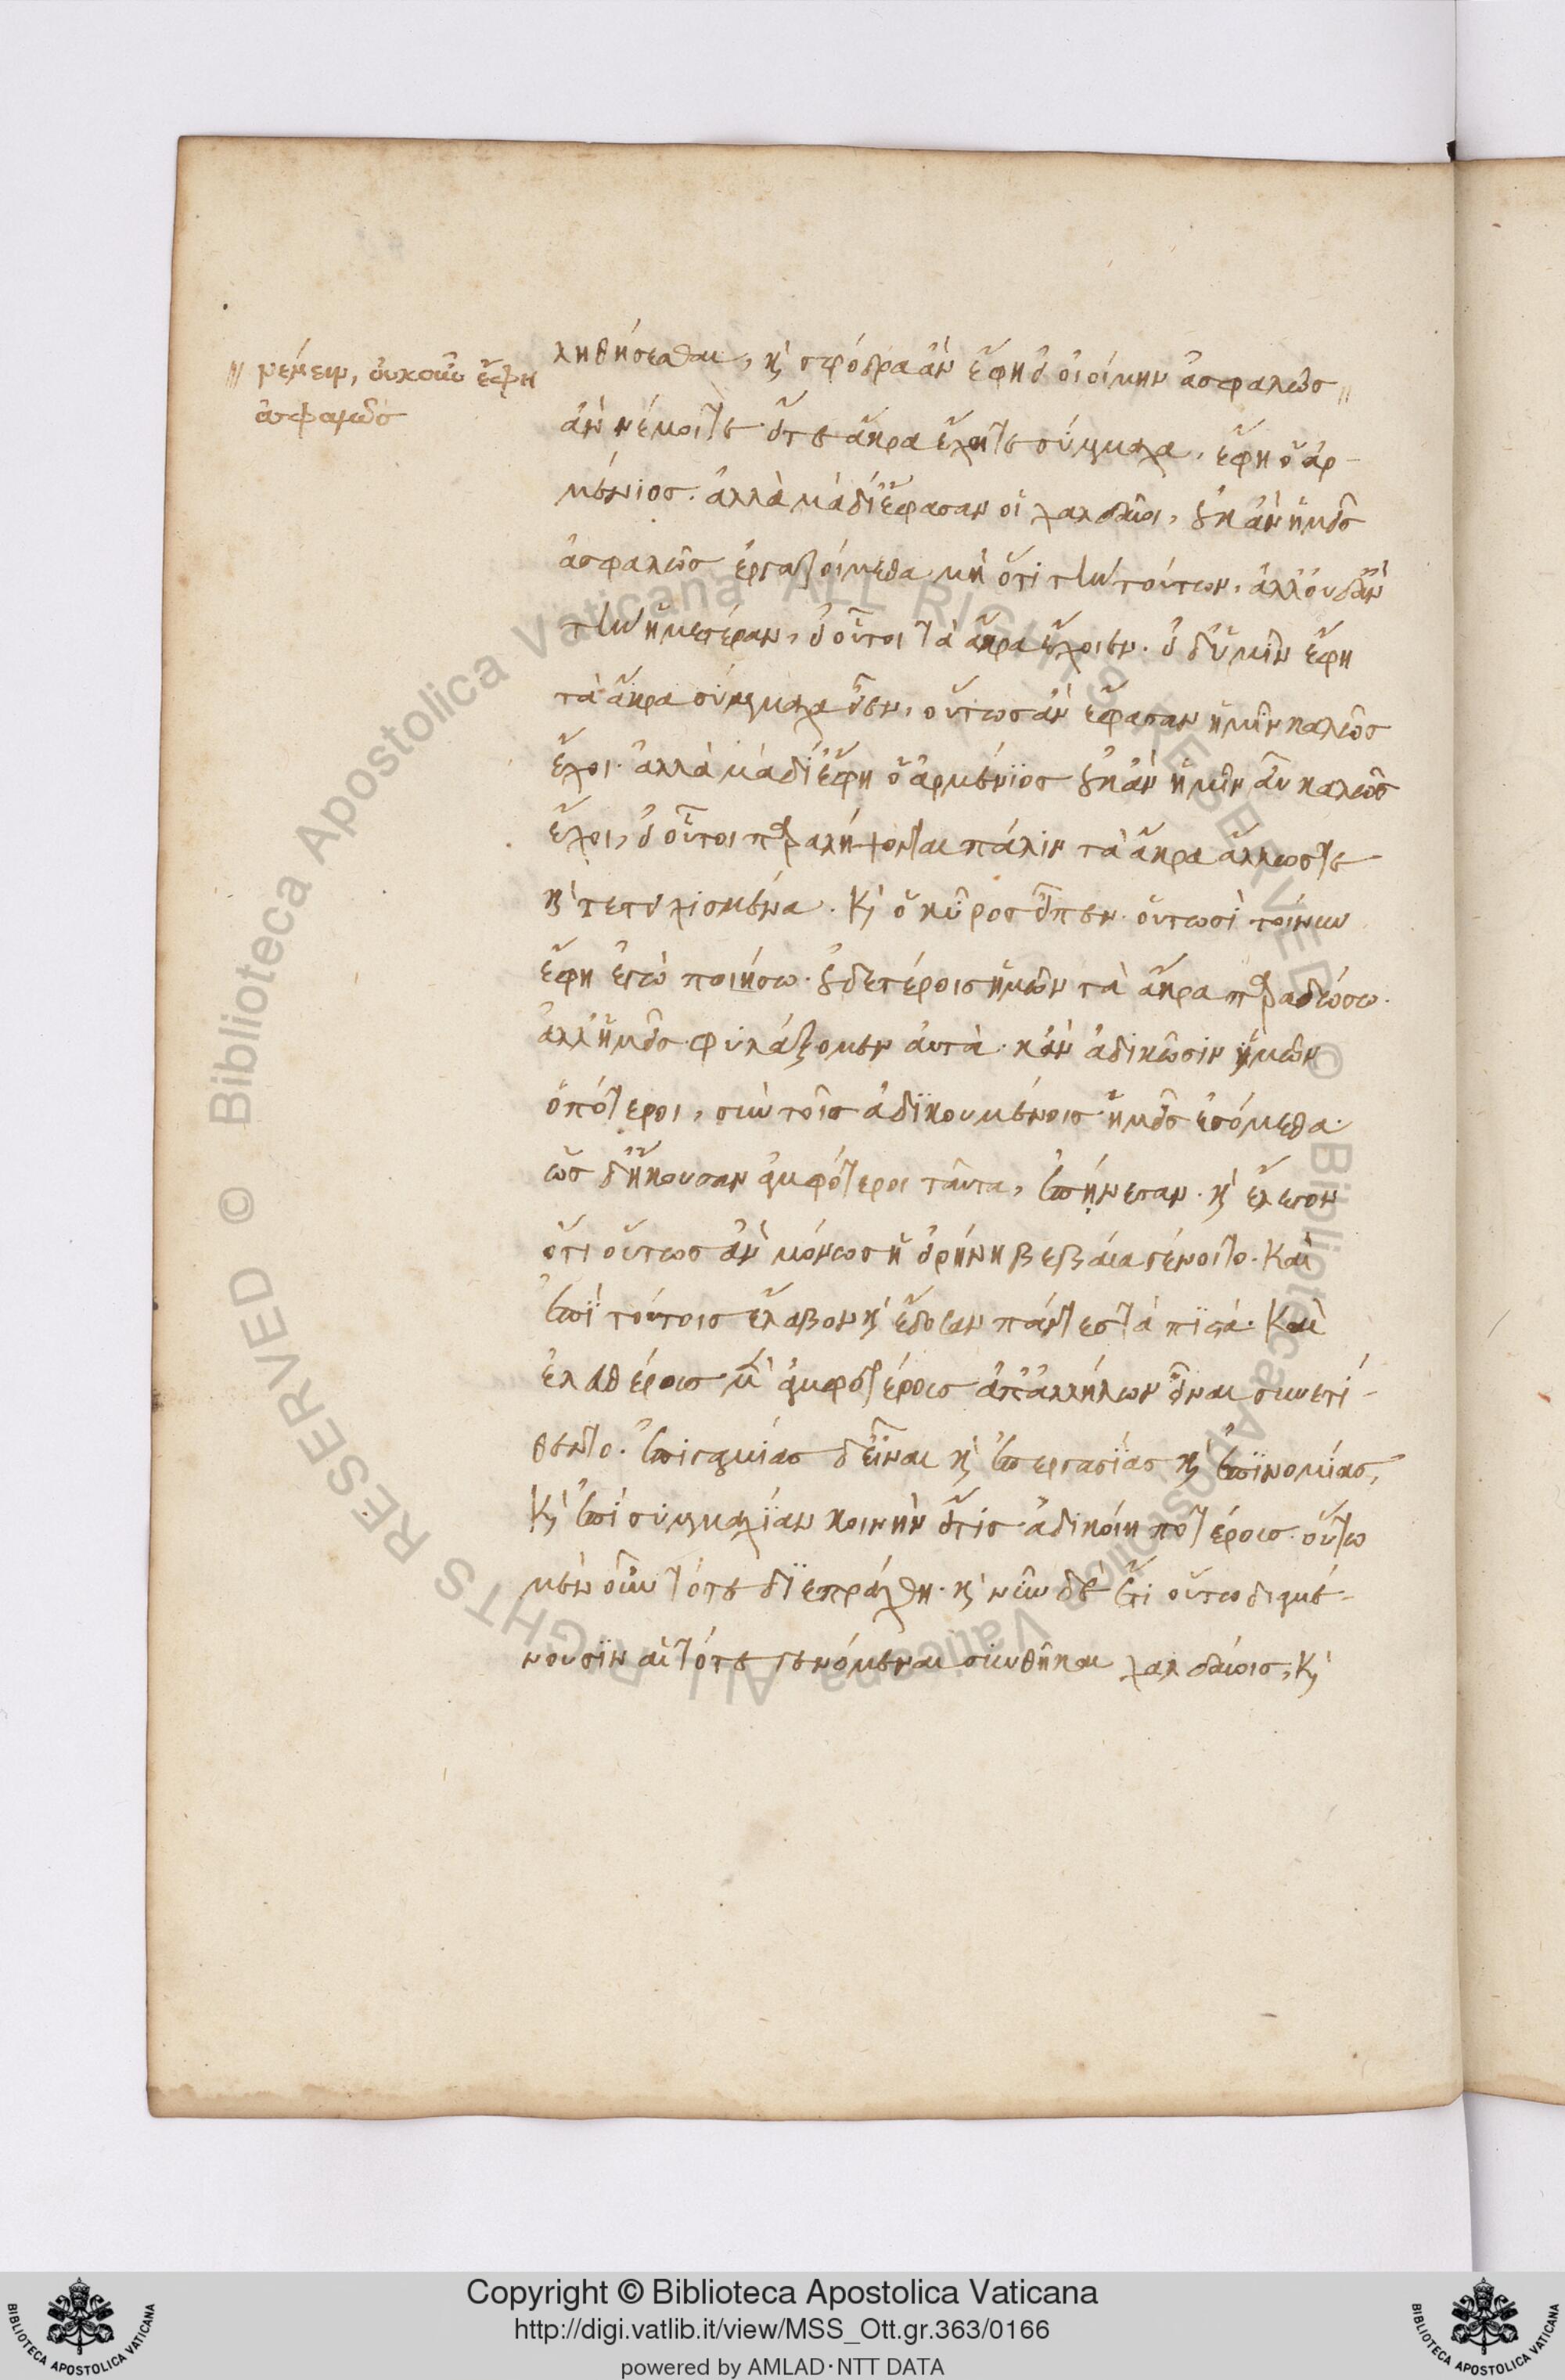 // νέμειν, οὐκοῦν ἔφη
ἀσφαλῶς
ληθήσεσθαι, κ̀ σφόδρα ἂν ἔφη εἰ οἰοίμην ἀσφαλῶς //
ἂν νέμοιτε εἴ τε ἄκρα ἔχοιτε σύμμαχα, ἔφη ὁ ἀρ-
μένιος. ἀλλὰ μὰ δί ἔφασαν οἱ χαλδαῖοι, οὐκ ἂν ἡμεῖς
ἀσφαλῶς ἐργαζοίμεθα μὴ ὅτι τὴν τούτων, ἀλλ' οὐδ' ἂν
τὴν ἡμετέραν, εἰ οὗτοι τὰ ἄκρα ἔχοιεν. εἰ δ' ὑμῖν ἔφη
τὰ ἄκρα σύμμαχα εἴεν, οὕτως ἂν ἔφασαν ἡμῖν καλῶς
ἔχοι. ἀλλὰ μὰ δί ἔφη ὁ ἀρμένϊος οὐκ ἂν ἡμῖν αὖ καλῶς
ἔχοι, εἰ οὗτοι παραλήψονται πάλιν τὰ ἄκρα ἄλλως τε
κ̀ τετυχισμένα. κ̀ ὁ κῦρος εἶπεν. οὑτωσὶ τοίνυν
ἔφη ἐγὼ ποιήσω. οὐδετέροις ὑμῶν τὰ ἄκρα παραδώσω.
ἀλλ' ἡμεῖς φυλάξομεν αὐτὰ. κἂν ἀδικῶσιν ὑμῶν
ὁπότεροι, σὺν τοῖς ἀδϊκουμένοις ἡμεῖς ἐσόμεθα.
ὡς δ' ἤκουσαν ἀμφότεροι ταῦτα, ἐπῄνεσαν. κ̀ ἔλεγον
ὅτι οὕτως ἂν μόνως ἡ εἰρήνη βεβαία γένοιτο. καὶ
ἐπῒ τούτοις ἔλαβον κ̀ ἔδοσαν πάντες τὰ πϊστά. καὶ
ἐλευθέροις μὲν ἀμφοτέροις ἀπ' ἀλλήλων εἶναι συνετί-
θεντο. ἐπιγαμίας δ' εἶναι κ̀ ἐπεργασϊας κ̀ ἐπϊνομίας,
κ̀ ἐπὶ συμμαχϊαν κοινὴν εἴ τις ἀδικοίη ποτέροις. οὕτω
μὲν οὖν τότε δϊεπράχθη. κ̀ νῦν δὲ ἔτι οὕτω διαμέ-
νουσϊν αἱ τότε γενόμεναι συνθῆκαι χαλδαίοις, κ̀
Copyright © Biblioteca Apostolica Vaticana
http://digi.vatlib.it/view/MSS_Ott.gr.363/0166
powered by AMLAD·NTT DATA
BIBLIOTECA APOSTOLICA VATICANA
BIBLIOTECA APOSTOLICA VATICANA
© Biblioteca Apostolica Vaticana ALL RIGHTS RESERVED
© Biblioteca Apostolica Vaticana ALL RIGHTS RESERVED